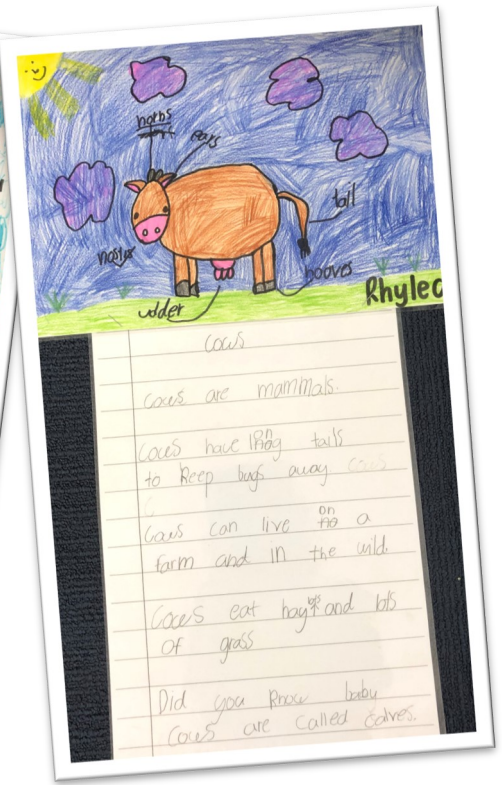 horns
ears
tail
hooves
udder
Rhylec
Cows
Cows are mammals.
Cows have long tails
to keep bugs away cows
Cows can live on a
farm and in the wild.
Cows eat hay and lots
of grass
Did you know baby
Cows are called calves.